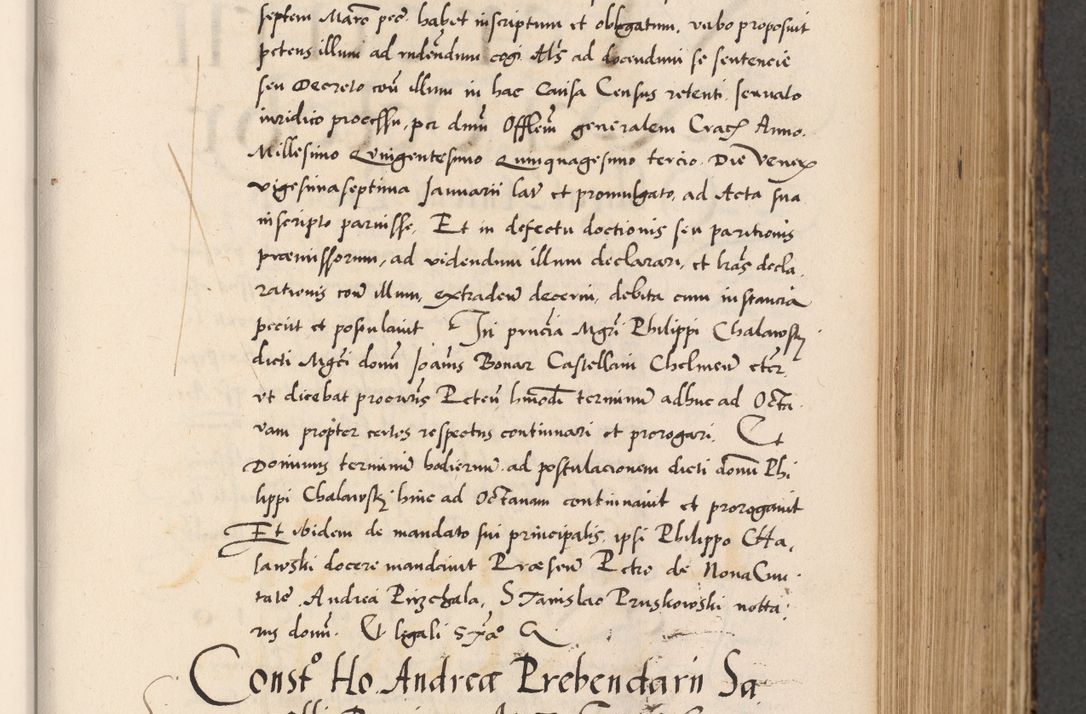 septem Marc pec habet inscriptum et obligatum, verbo proposuit
petens illum ad redendum cogi Als ad docendum se sentencie
seu Decreto con illum in hac Causa Census retenti, seruato
iuridico processu, per dnm Offlem generalem Crac Anno
Millesimo Quingentesimo Quinquagesimo tercio. Die Vener
vigesimaseptima Januarii lat et promulgato, ad Acta sua
inscripto paruisse, Et in defectu doctionis seu paritionis
præmissorum, ad videndum illum declarari, et lras decla
rationis con illum, extraden decerni, debita cum instancia
peciit et postulauit In pncia Mgri Philippi Chalawsky
dicti Mgci domni Joanis Bonar Castellani Chelmen etc
vt dicebat procuris Peten hmodi terminum adhuc ad Octa
vam propter certos respectus continuari et prorogari. Et
Dominus terminum hodiernum ad postulacionem dicti domni Phi
lippi Chalawsky hinc ad Octauam continuauit et prorogauit
Et ibidem de mandato sui principalis, ipsi Philippo Cha,
lawski docere mandauit Præsen Petro de NouaCiui
tate Andrea Przechala, Stanislao Pruskowski notta
rus domni. Et legali
Const Ho Andreæ Prebendarii Sa